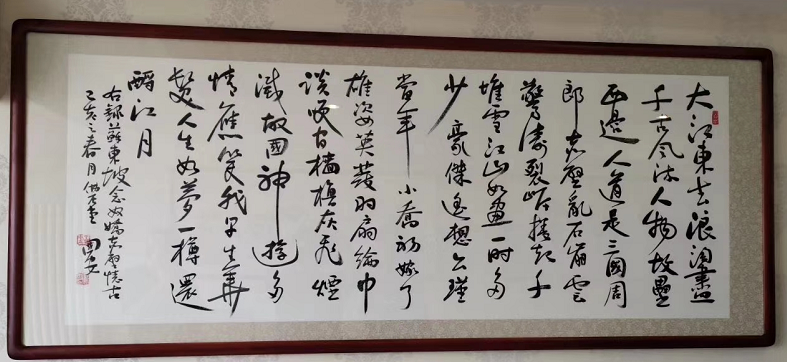 大江東去浪淘盡
千古風流人物故壘
西邊人道是三國周
郎赤壁亂石崩雲
驚濤裂岸捲起千
堆雪江山如畫一時多
少豪傑遙想公瑾
當年小喬初嫁了
雄姿英發羽扇綸巾
談笑间檣櫓灰飛煙
滅故國神遊多
情應笑我早生華
髮人生如夢一樽還
酹江月
右錄蘇東坡念奴嬌赤壁懷古
己亥之春月